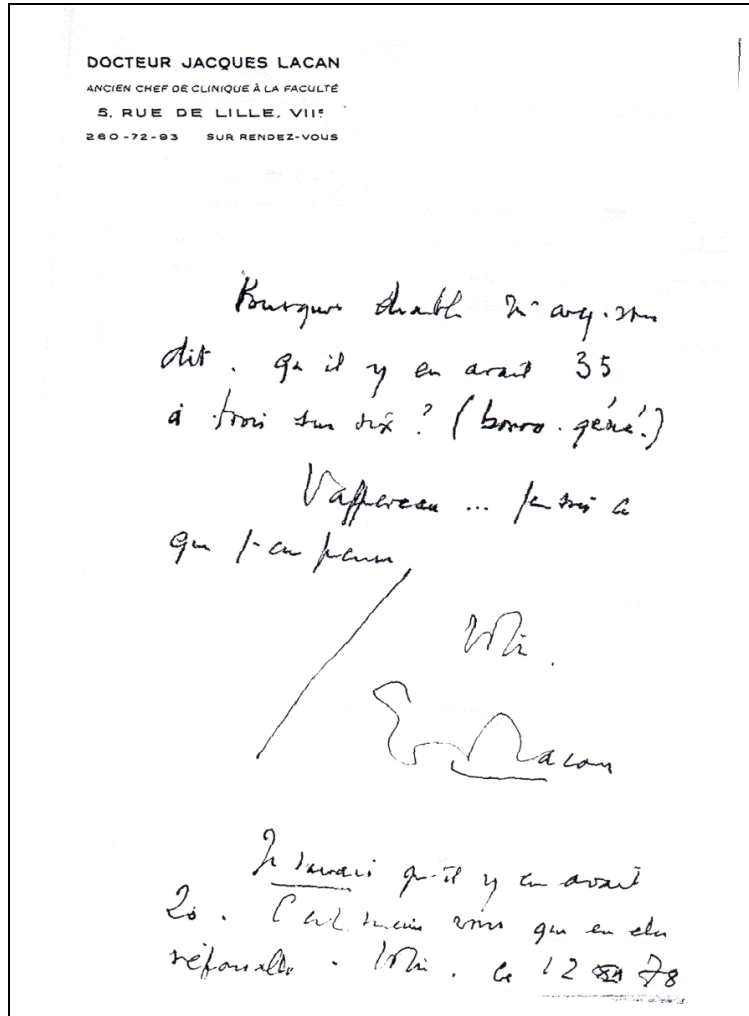 DOCTEUR JACQUES LACAN
ANCIEN CHEF DE CLINIQUE À LA FACULTÉ
5, RUE DE LILLE. VIIᵉ
260-72-93 SUR RENDEZ-VOUS
Pourquoi diable m'avez-vous
dit. qu'il y en avait 35
à trois sur six ? (borro. géné.)
Vappereau ... j'en suis à
que j'en pense
Votre.
Lacan
Je savais qu'il y en avait
20. C'est vous que en êtes
responsable. Votre. le 12 78